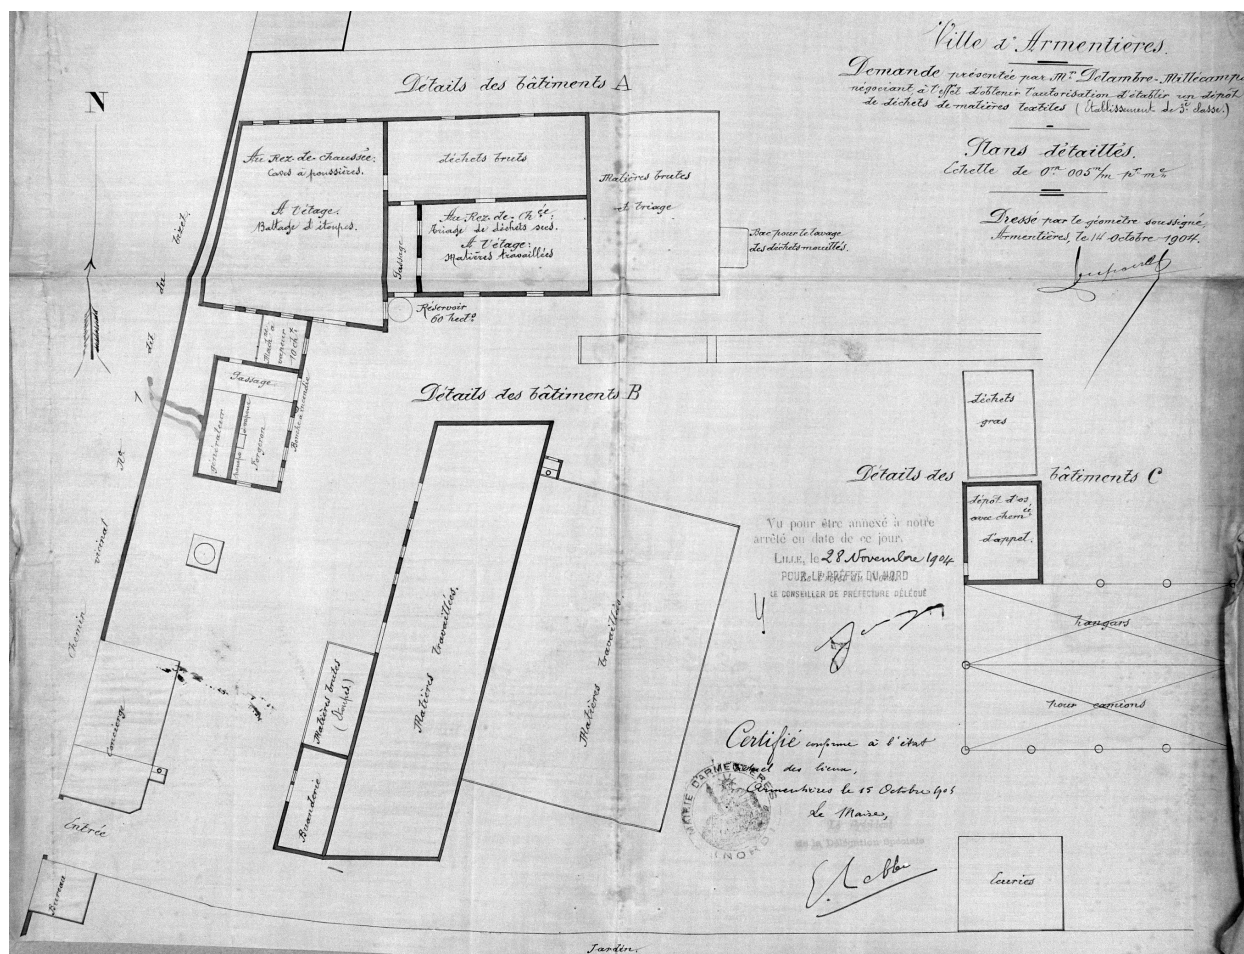 Ville d'Armentières.
Demande présentée par Mr. Delambre-Millécamps
négociant, à l'effet d'obtenir l'autorisation d'établir un dépôt
de déchets de matières textiles (Etablissement de 3e classe.)
Plans détaillés.
Echelle de 0m 005m/m pr. me.
Dressé par le géomètre soussigné,
Armentières, le 14 Octobre 1904.
N
Détails des bâtiments A
Au Rez-de-chaussée:
Caves à poussières.
A l'étage.
Battage d'étoupes.
déchets bruts
Passage
Au Rez-de-Chée:
triage de déchets secs.
A l'étage:
Matières travaillées
Matières brutes
et triage
Bac pour le lavage
des déchets mouillés.
Réservoir
60 hecto
Machine à
vapeur
10 chx.
Passage
générateur
pompe
Forgeron
Bouche à incendie
Chemin vicinal No. 7 dit du bizet.
Détails des bâtiments B
Matières travaillées.
Matières travaillées.
Matières brutes
(Etoupes.)
Buanderie
Concierge
Entrée
Bureau
Détails des bâtiments C
déchets
gras
dépôt d'os,
avec chemée
d'appel.
hangars
pour camions
Ecuries
Jardin.
Vu pour être annexé à notre
arrêté en date de ce jour.
LILLE, le 28 Novembre 1904
POUR LE PRÉFET DU NORD
LE CONSEILLER DE PRÉFECTURE DÉLÉGUÉ
Certifié conforme à l'état
actuel des lieux,
Armentières le 15 Octobre 1904
Le Maire,
MAIRIE D'ARMENTIÈRES
(NORD)